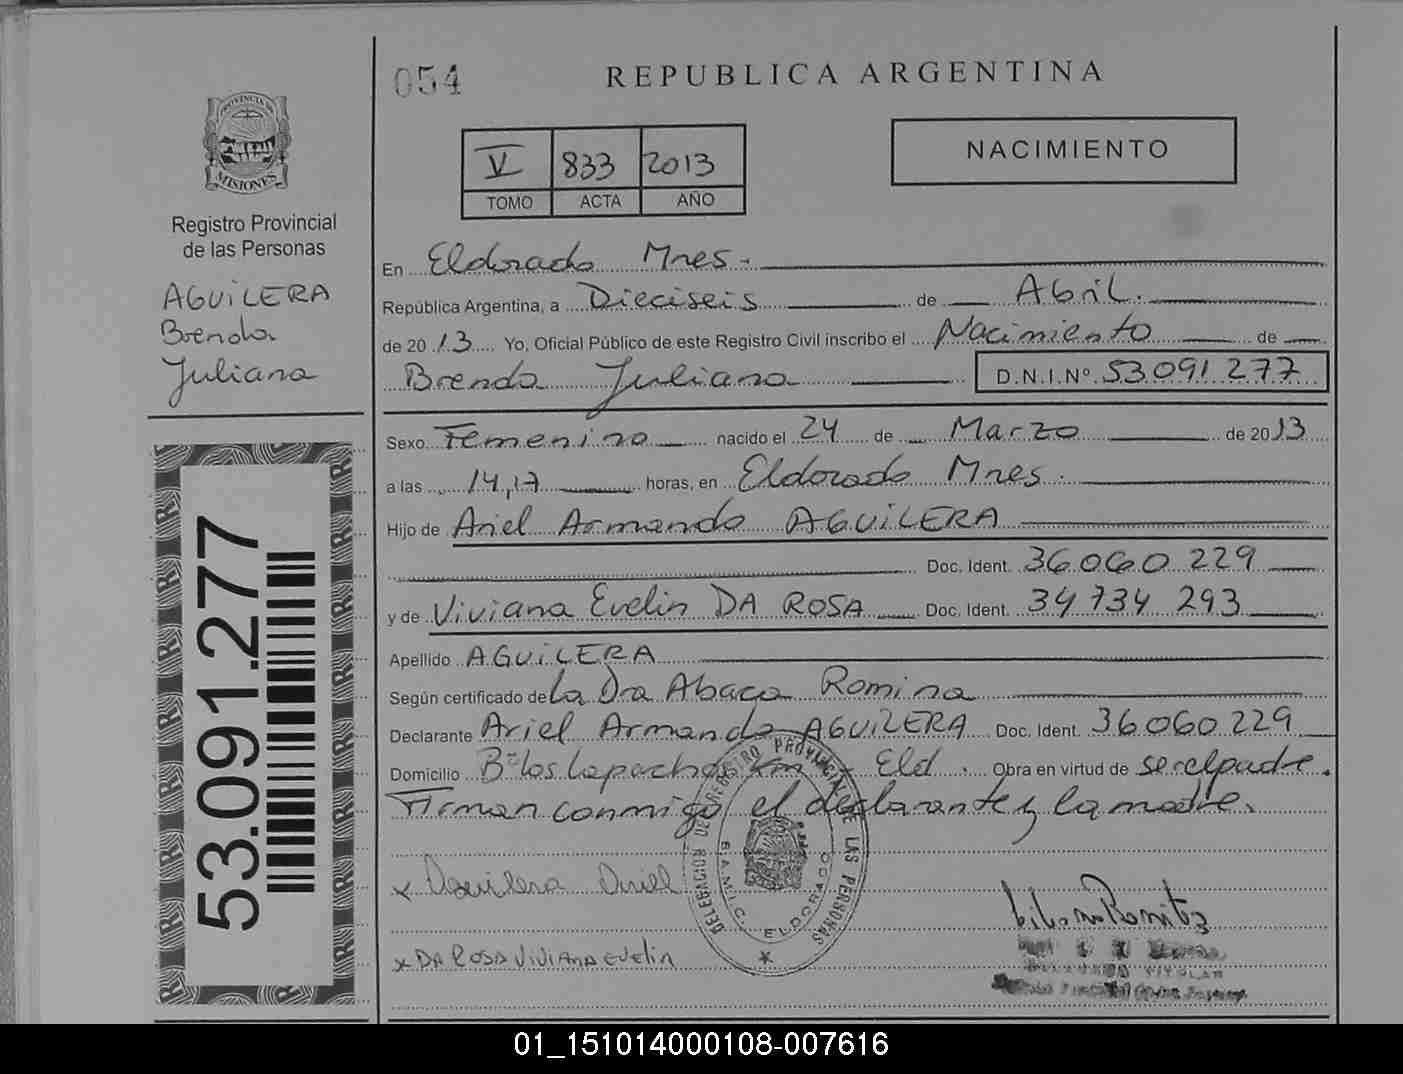 054
REPUBLICA ARGENTINA
PROVINCIA DE
MISIONES
Registro Provincial
de las Personas
AGUILERA
Brenda
Juliana
53.091.277
V 833 2013
TOMO ACTA AÑO
NACIMIENTO
En Eldorado Mnes.
República Argentina, a Dieciseis de Abril.
de 2013 Yo, Oficial Público de este Registro Civil inscribo el Nacimiento de
Brenda Juliana D.N.I.Nº 53.091.277
Sexo Femenino nacido el 24 de Marzo de 2013
a las 14,17 horas, en Eldorado Mnes.
Hijo de Ariel Armando AGUILERA
Doc. Ident. 36.060.229
y de Viviana Evelin DA ROSA Doc. Ident. 34 734 293
Apellido AGUILERA
Según certificado de la Dra Abaca Romina
Declarante Ariel Armando AGUILERA Doc. Ident. 36060229
Domicilio Bº los Lapachos Km Eld. Obra en virtud de ser el padre.
Firman conmigo el declarante y la madre.
x Aguilera Ariel
x DA ROSA VIVIANA EVELIN
REGISTRO PROVINCIAL DE LAS PERSONAS
ELDORADO
TITULAR
01_151014000108-007616